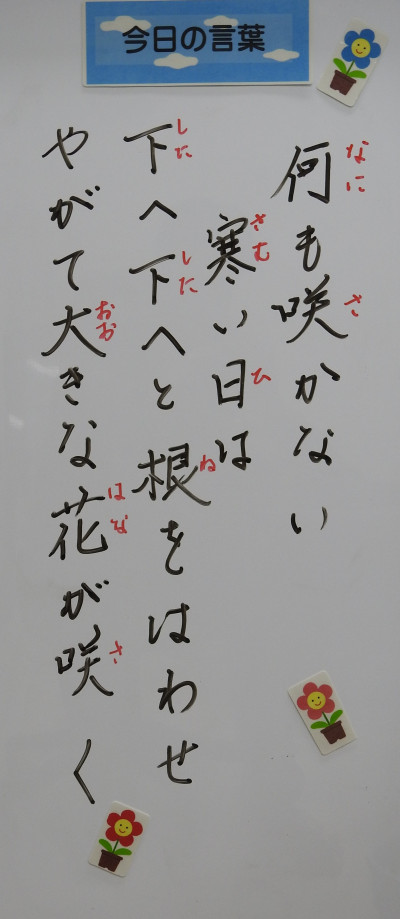 今日の言葉
何も咲かない
なに
さ
寒い日は
さむ
ひ
下へ下へと根をはわせ
した
した
ね
やがて大きな花が咲く
おお
はな
さ